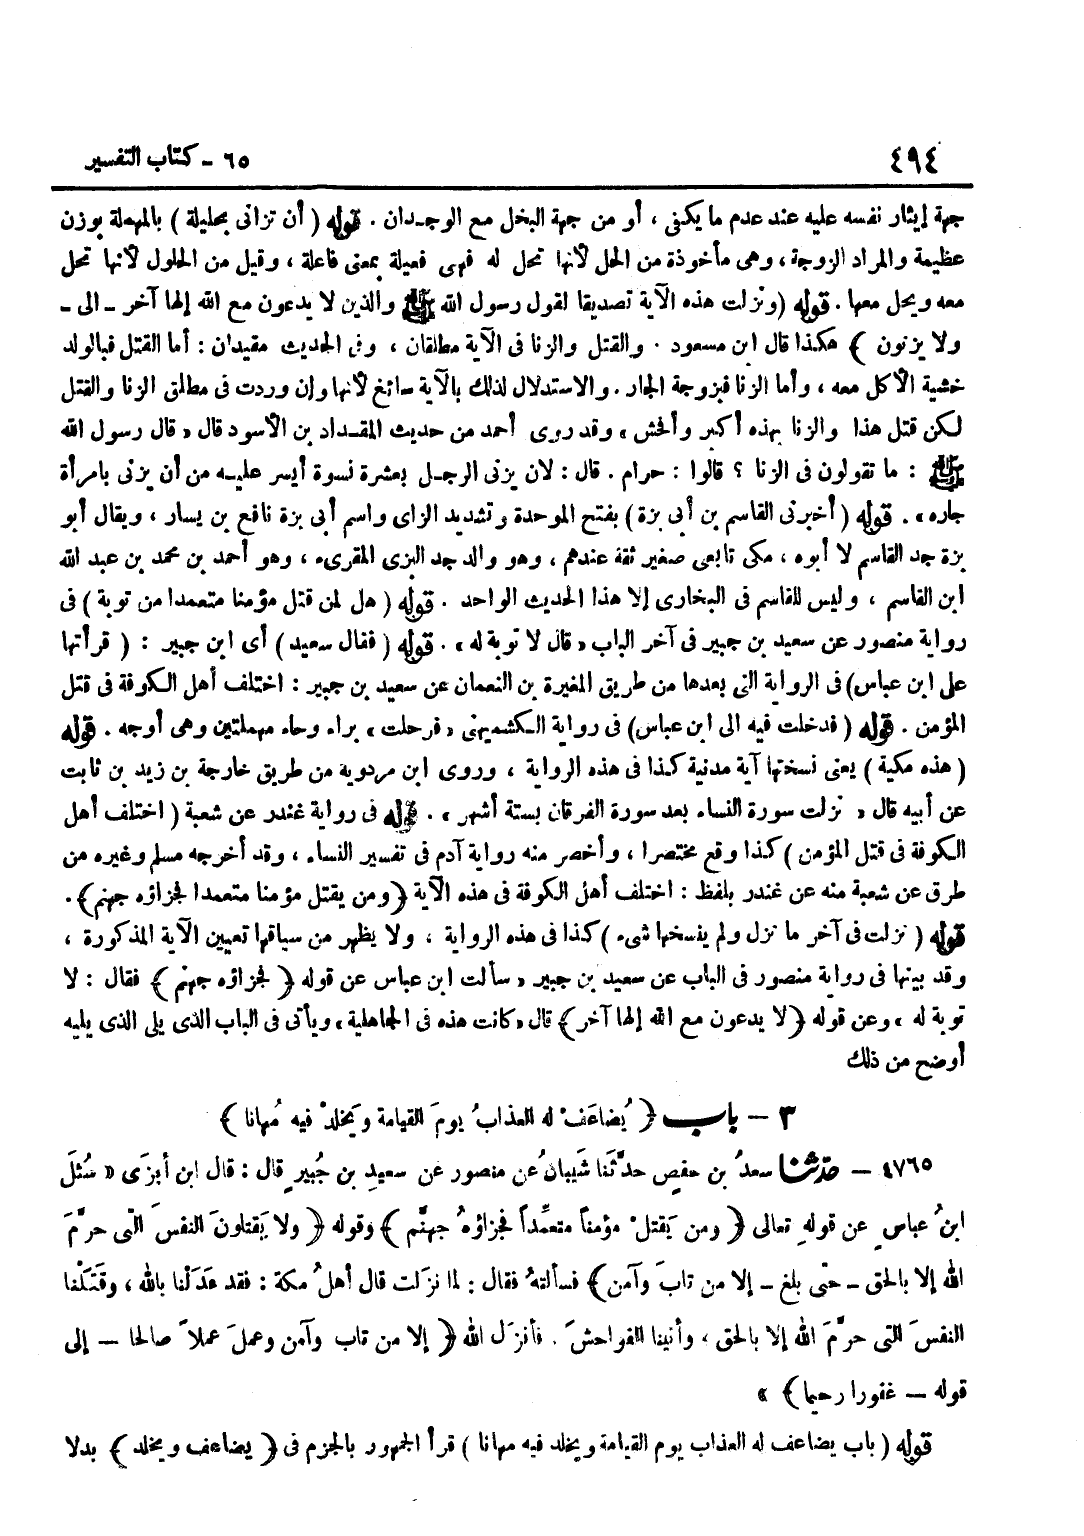 ٤٩٤ ٦٥ - كتاب التفسير
جهة إيثار نفسه عليه عند عدم ما يكفى ، أو من جهة البخل مع الوجدان . قوله ( أن تزانى بحليلة ) بالمهملة بوزن
عظيمة والمراد الزوجة ، وهى مأخوذة من الحل لأنها تحل له فهى فعيلة بمعنى فاعلة ، وقيل من الحلول لأنها تحل
معه ويحل معها . قوله (ونزلت هذه الآية تصديقا لقول رسول الله ﷺ والذين لا يدعون مع الله إلها آخر - الى -
ولا يزنون ﴾ هكذا قال ابن مسعود . والقتل والزنا فى الآية مطلقان ، وفى الحديث مقيدان : أما القتل فبالولد
خشية الأكل معه ، وأما الزنا فبزوجة الجار . والاستدلال لذلك بالآية سائغ لأنها وإن وردت فى مطلق الزنا والقتل
لكن قتل هذا والزنا بهذه أكبر وأفحش ، وقد روى أحمد من حديث المقداد بن الأسود قال « قال رسول الله
ﷺ : ما تقولون فى الزنا ؟ قالوا : حرام . قال : لان يزنى الرجل بعشرة نسوة أيسر عليه من أن يزنى بامرأة
جاره » . قوله ( أخبرنى القاسم بن أبى بزة ) بفتح الموحدة وتشديد الزاى واسم أبى بزة نافع بن يسار ، ويقال أبو
بزة جد القاسم لا أبوه ، مكى تابعى صغير ثقة عندهم ، وهو والد جد البزى المقرىء ، وهو أحمد بن محمد بن عبد الله
ابن القاسم ، وليس للقاسم فى البخارى إلا هذا الحديث الواحد . قوله ( هل لمن قتل مؤمنا متعمدا من توبة ) فى
رواية منصور عن سعيد بن جبير فى آخر الباب « قال لا توبة له » . قوله ( فقال سعيد ) أى ابن جبير : ( قرأتها
على ابن عباس) فى الرواية التى بعدها من طريق المغيرة بن النعمان عن سعيد بن جبير : اختلف أهل الكوفة فى قتل
المؤمن . قوله ( فدخلت فيه الى ابن عباس) فى رواية الكشميهنى « فرحلت » براء وحاء مهملتين وهى أوجه . قوله
( هذه مكية ) يعنى نسختها آية مدنية كذا فى هذه الرواية ، وروى ابن مردويه من طريق خارجة بن زيد بن ثابت
عن أبيه قال « نزلت سورة النساء بعد سورة الفرقان بستة أشهر » . قوله فى رواية غندر عن شعبة ( اختلف أهل
الكوفة فى قتل المؤمن ) كذا وقع مختصرا ، وأخصر منه رواية آدم فى تفسير النساء ، وقد أخرجه مسلم وغيره من
طرق عن شعبة منه عن غندر بلفظ : اختلف أهل الكوفة فى هذه الآية ﴿ ومن يقتل مؤمنا متعمدا فجزاؤه جهنم ﴾ .
قوله ( نزلت فى آخر ما نزل ولم ينسخها شىء ) كذا فى هذه الرواية ، ولا يظهر من سياقها تعيين الآية المذكورة ،
وقد بينها فى رواية منصور فى الباب عن سعيد بن جبير « سألت ابن عباس عن قوله ﴿ فجزاؤه جهنم ﴾ فقال : لا
توبة له ، وعن قوله ﴿ لا يدعون مع الله إلها آخر ﴾ قال « كانت هذه فى الجاهلية » ويأتى فى الباب الذى يلى الذى يليه
أوضح من ذلك
٣ - باب ﴿ يُضاعَفْ له العذابُ يومَ القيامة ويَخلدْ فيه مُهانا ﴾
٤٧٦٥ - حدّثنا سعدُ بن حفصٍ حدَّثنا شَيبانُ عن منصور عن سعيدِ بن جُبيرٍ قال : قال ابن أبزَى « سُئلَ
ابنُ عباسٍ عن قولهِ تعالى ﴿ ومن يَقتلْ مؤمناً متعمِّداً فجزاؤهُ جهنَّم ﴾ وقوله ﴿ ولا يَقتلونَ النفسَ التى حرَّمَ
الله إلا بالحق - حتى بلغ - إلا من تابَ وآمن ﴾ فسألتهُ فقال : لما نزَلت قال أهلُ مكة : فقد عَدَلْنا بالله ، وقَتَلْنا
النفسَ التى حرَّمَ الله إلا بالحق ، وأتينا الفواحشَ . فأنزَلَ الله ﴿ إلا من تاب وآمن وعملَ عملاً صالحا - إلى
قوله - غفورا رحيما ﴾ »
قوله ( باب يضاعف له العذاب يوم القيامة ويخلد فيه مهانا ) قرأ الجمهور بالجزم فى ﴿ يضاعف ويخلد ﴾ بدلا